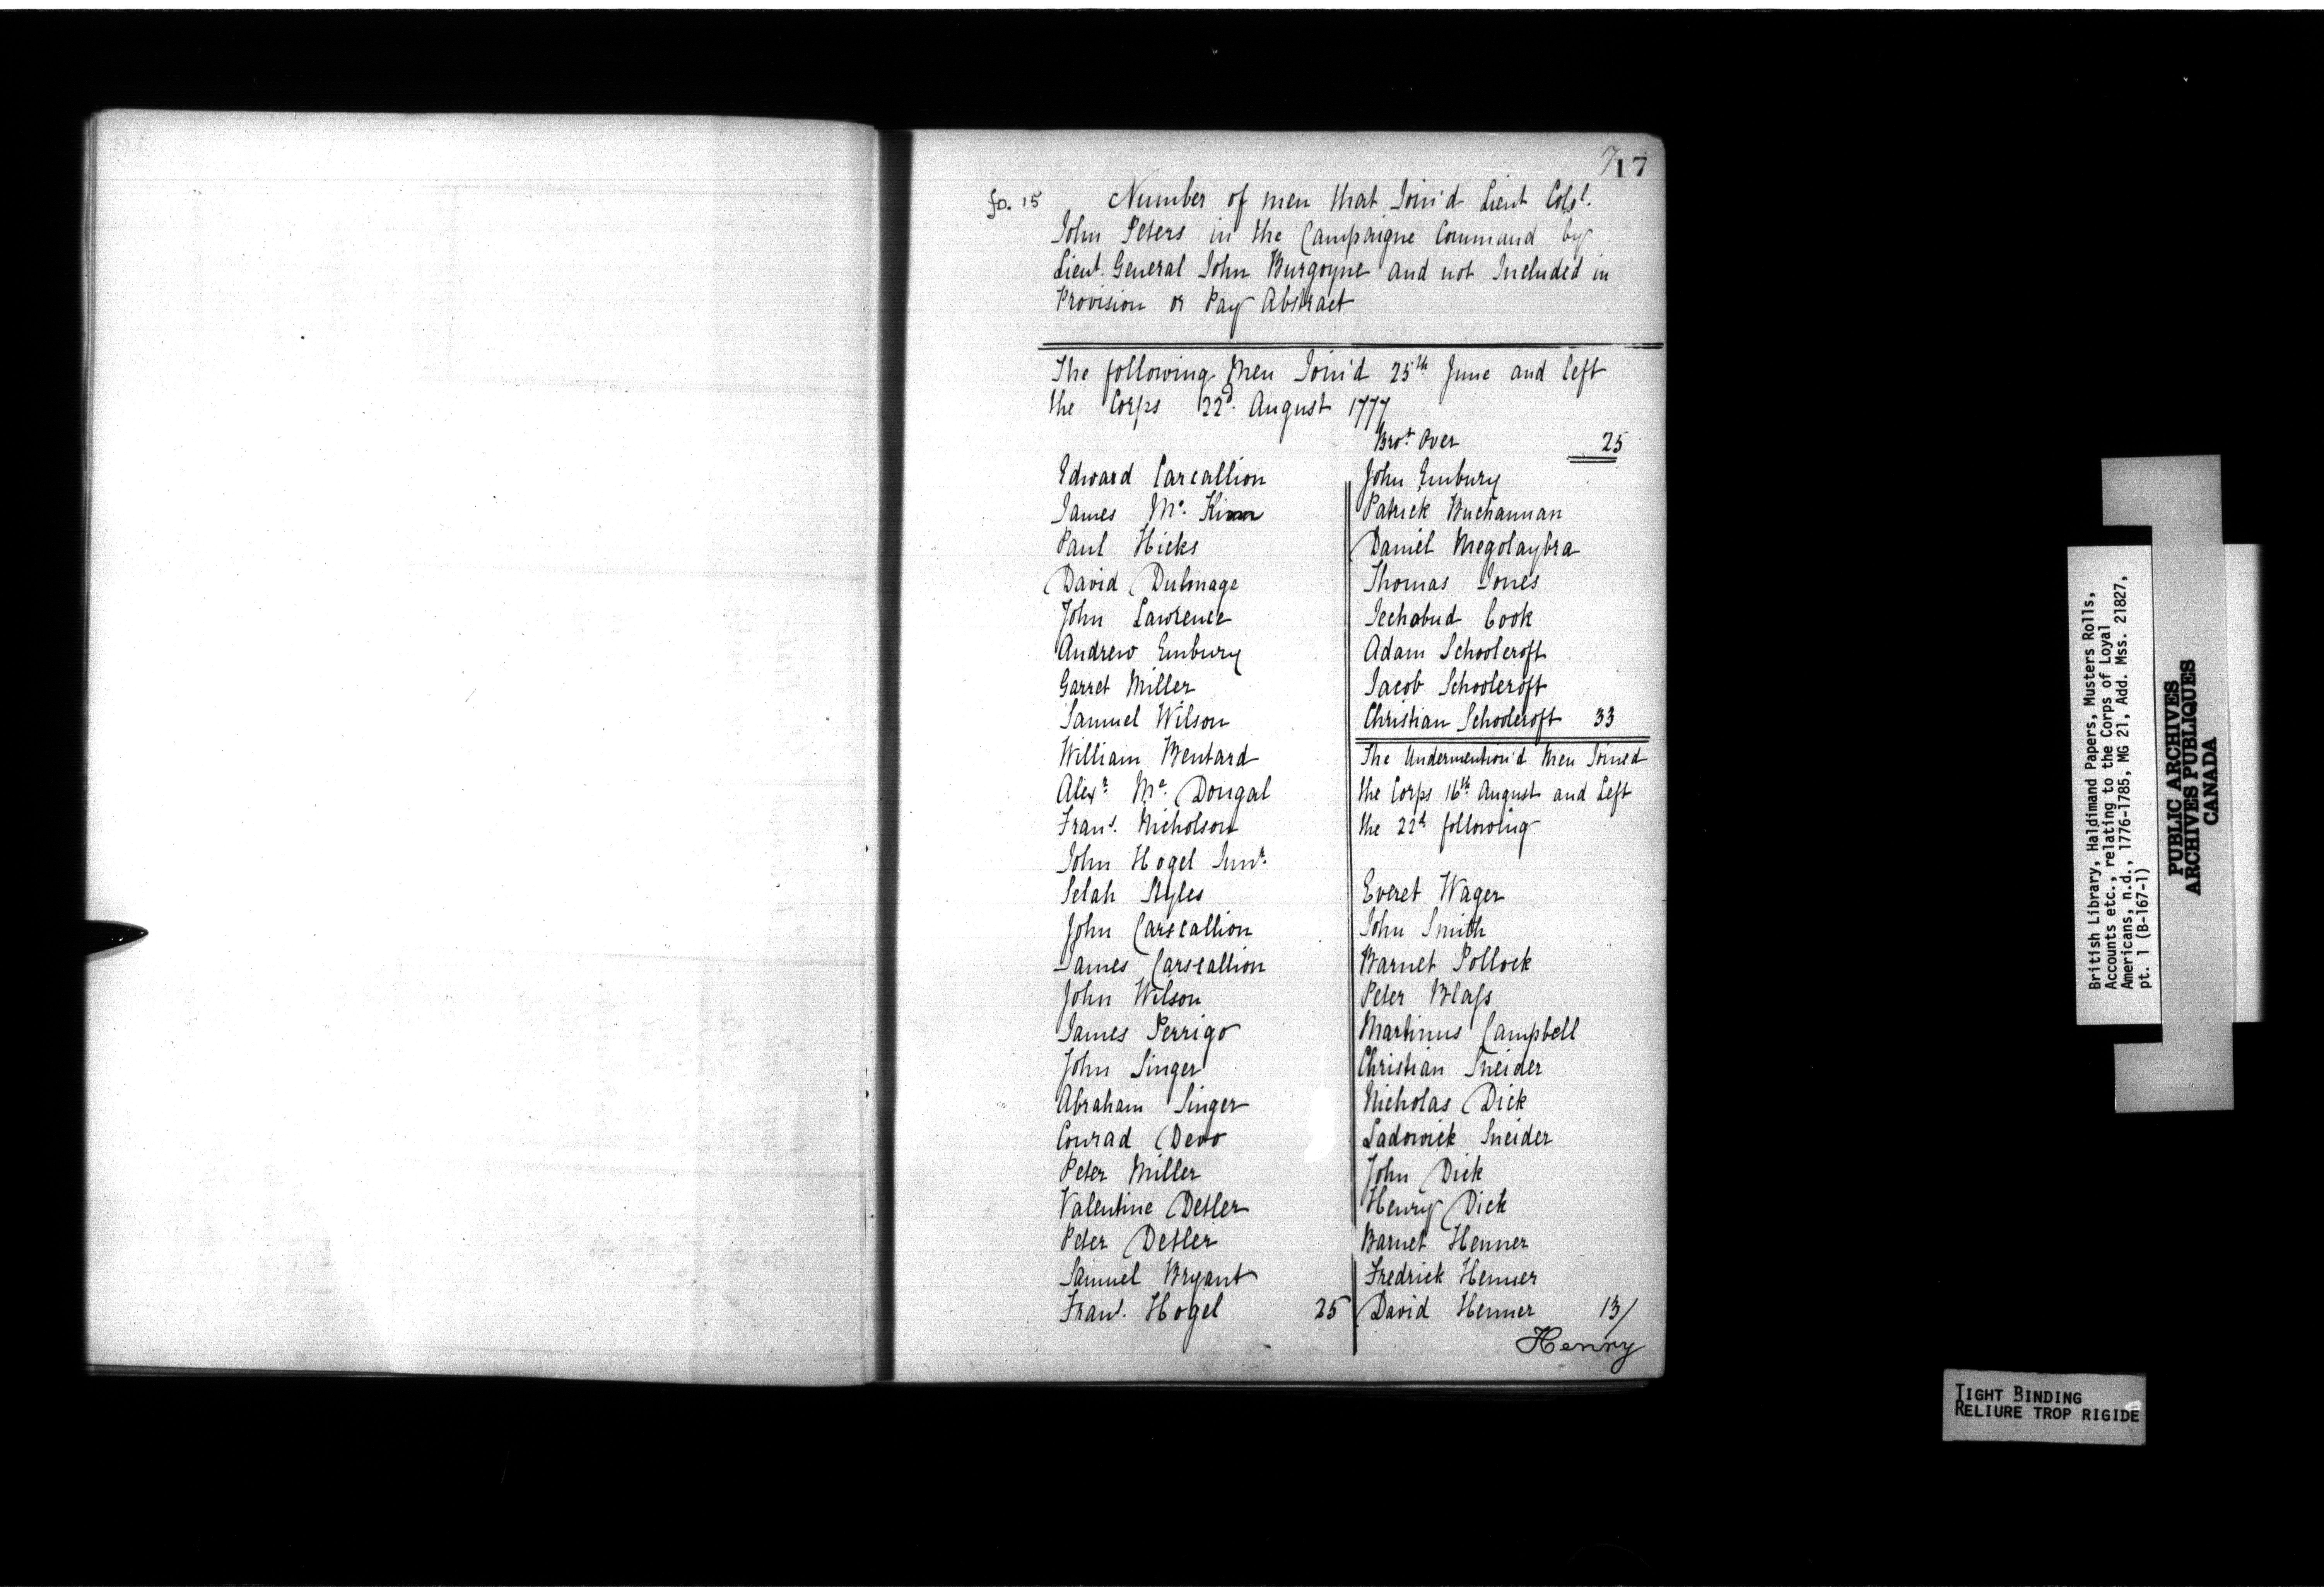 717
fo. 15 Number of men that Join'd Lieut Coll.
John Peters in the Campaigne Command by
Lieut. General John Burgoyne and not Included in
Provision or Pay Abstract
The following Men Join'd 25th June and left
the Corps 22d. August 1777
Edward Carcallion
James Mc. Kinn
Paul Hicks
David Dulmage
John Lawrence
Andrew Embury
Garret Miller
Samuel Wilson
William Bentard
Alexr. Mc. Dougal
Frans. Nicholson
John Hogel Junr.
Selah Styles
John Carscallion
James Carscallion
John Wilson
James Perrigo
John Singer
Abraham Singer
Conrad Devo
Peter Miller
Valentine Detler
Peter Detler
Samuel Bryant
Frans. Hogel 25
Brot. Over 25
John Embury
Patrick Buchannan
Daniel Megolaybra
Thomas Jones
Jechabud Cook
Adam Schoolcroft
Jacob Schoolcroft
Christian Schoolcroft 33
The Undermention'd Men Joined
the Corps 16th August and Left
the 22d following
Everet Wager
John Smith
Barnet Pollock
Peter Blass
Martinus Campbell
Christian Sneider
Nicholas Dick
Ladowick Sneider
John Dick
Henry Dick
Barnet Henner
Fredrick Henner
David Henner 13/
Henry
British Library, Haldimand Papers, Musters Rolls,
Accounts etc., relating to the Corps of Loyal
Americans, n.d., 1776-1785, MG 21, Add. Mss. 21827,
pt. 1 (B-167-1)
PUBLIC ARCHIVES
ARCHIVES PUBLIQUES
CANADA
TIGHT BINDING
RELIURE TROP RIGIDE